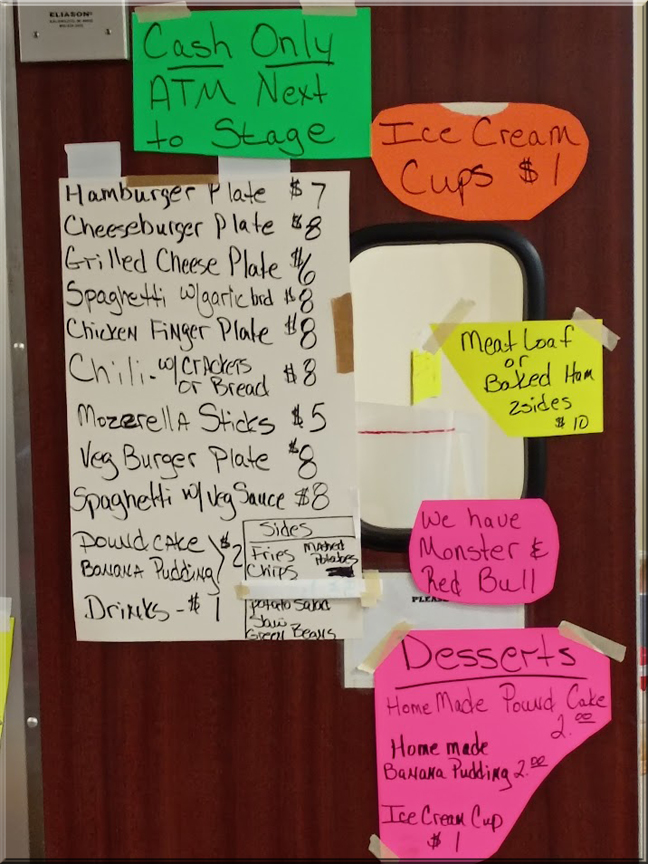 ELIASON
Cash Only
ATM Next
to Stage
Ice Cream
Cups $1
Hamburger Plate $7
Cheeseburger Plate $8
Grilled Cheese Plate $6
Spaghetti w/garlic brd $8
Chicken Finger Plate $8
Chili - w/crackers
or Bread $8
Mozerella Sticks $5
Veg Burger Plate $8
Spaghetti w/Veg Sauce $8
Pound Cake
Banana Pudding $2
Drinks - $1
Sides
Fries Mashed
Potatoes
Chips
Potato Salad
Slaw
Green Beans
Meat Loaf
or
Baked Ham
2sides
$10
We have
Monster &
Red Bull
PLEAS
Desserts
Home Made Pound Cake
2.00
Home made
Banana Pudding 2.00
Ice Cream Cup
$1